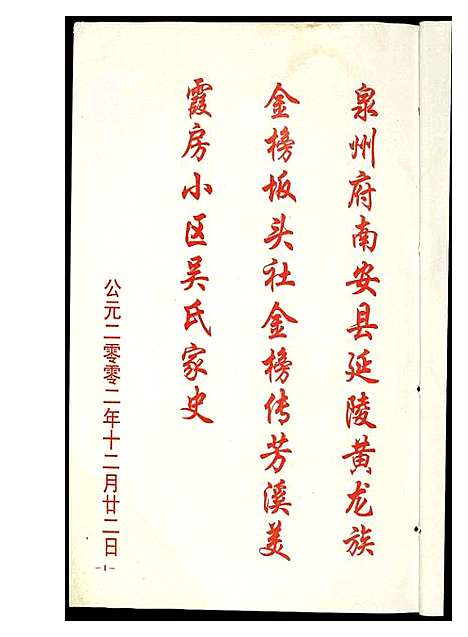 泉州府南安县延陵黄龙族
金榜坂头社金榜传芳溪美
霞房小区吴氏家史
公元二零零二年十二月廿二日
-1-